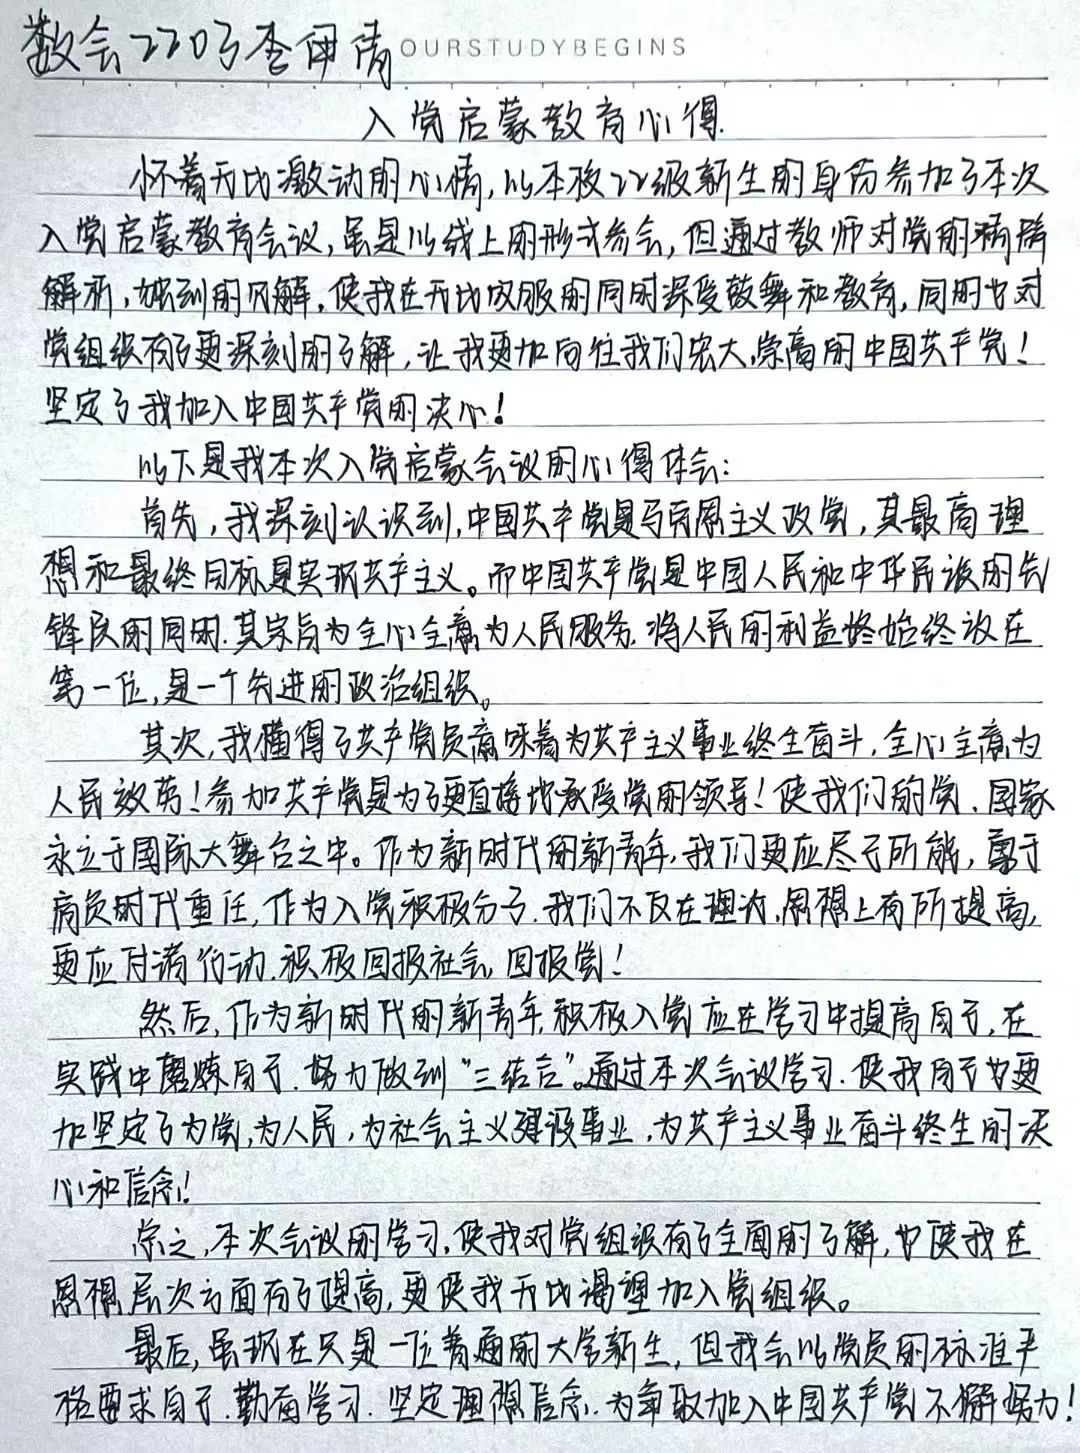 数会2203李伊倩 OURSTUDYBEGINS
入党启蒙教育心得.
怀着无比激动的心情,以本校22级新生的身份参加了本次
入党启蒙教育会议,虽是以线上的形式参会,但通过教师对党的精辟
解析,独到的见解,使我在无比叹服的同时深受鼓舞和教育,同时也对
党组织有了更深刻的了解,让我更加向往我们宏大,崇高的中国共产党!
坚定了我加入中国共产党的决心!
以下是我本次入党启蒙会议的心得体会:
首先,我深刻认识到,中国共产党是马克思主义政党,其最高理
想和最终目标是实现共产主义。而中国共产党是中国人民和中华民族的先
锋队的同时.其宗旨为全心全意为人民服务.将人民的利益终始终放在
第一位,是一个先进的政治组织。
其次,我懂得了共产党员意味着为共产主义事业终生奋斗.全心全意为
人民效劳!参加共产党是为了更直接地承受党的领导!使我们的党.国家
永立于国际大舞台之中。作为新时代的新青年,我们更应尽己所能,勇于
肩负时代重任,作为入党积极分子.我们不仅在理论.思想上有所提高,
更应付诸行动.积极回报社会,回报党!
然后,作为新时代的新青年,积极入党应在学习中提高自己,在
实践中磨炼自己.努力做到“三结合”。通过本次会议学习.使我自己也更
加坚定了为党,为人民,为社会主义建设事业,为共产主义事业奋斗终生的决
心和信念!
总之,本次会议的学习,使我对党组织有了全面的了解,也使我在
思想层次方面有了提高,更使我无比渴望加入党组织。
最后,虽现在只是一位普通的大学新生,但我会以党员的标准严
格要求自己.勤奋学习.坚定理想信念.为争取加入中国共产党不懈努力!